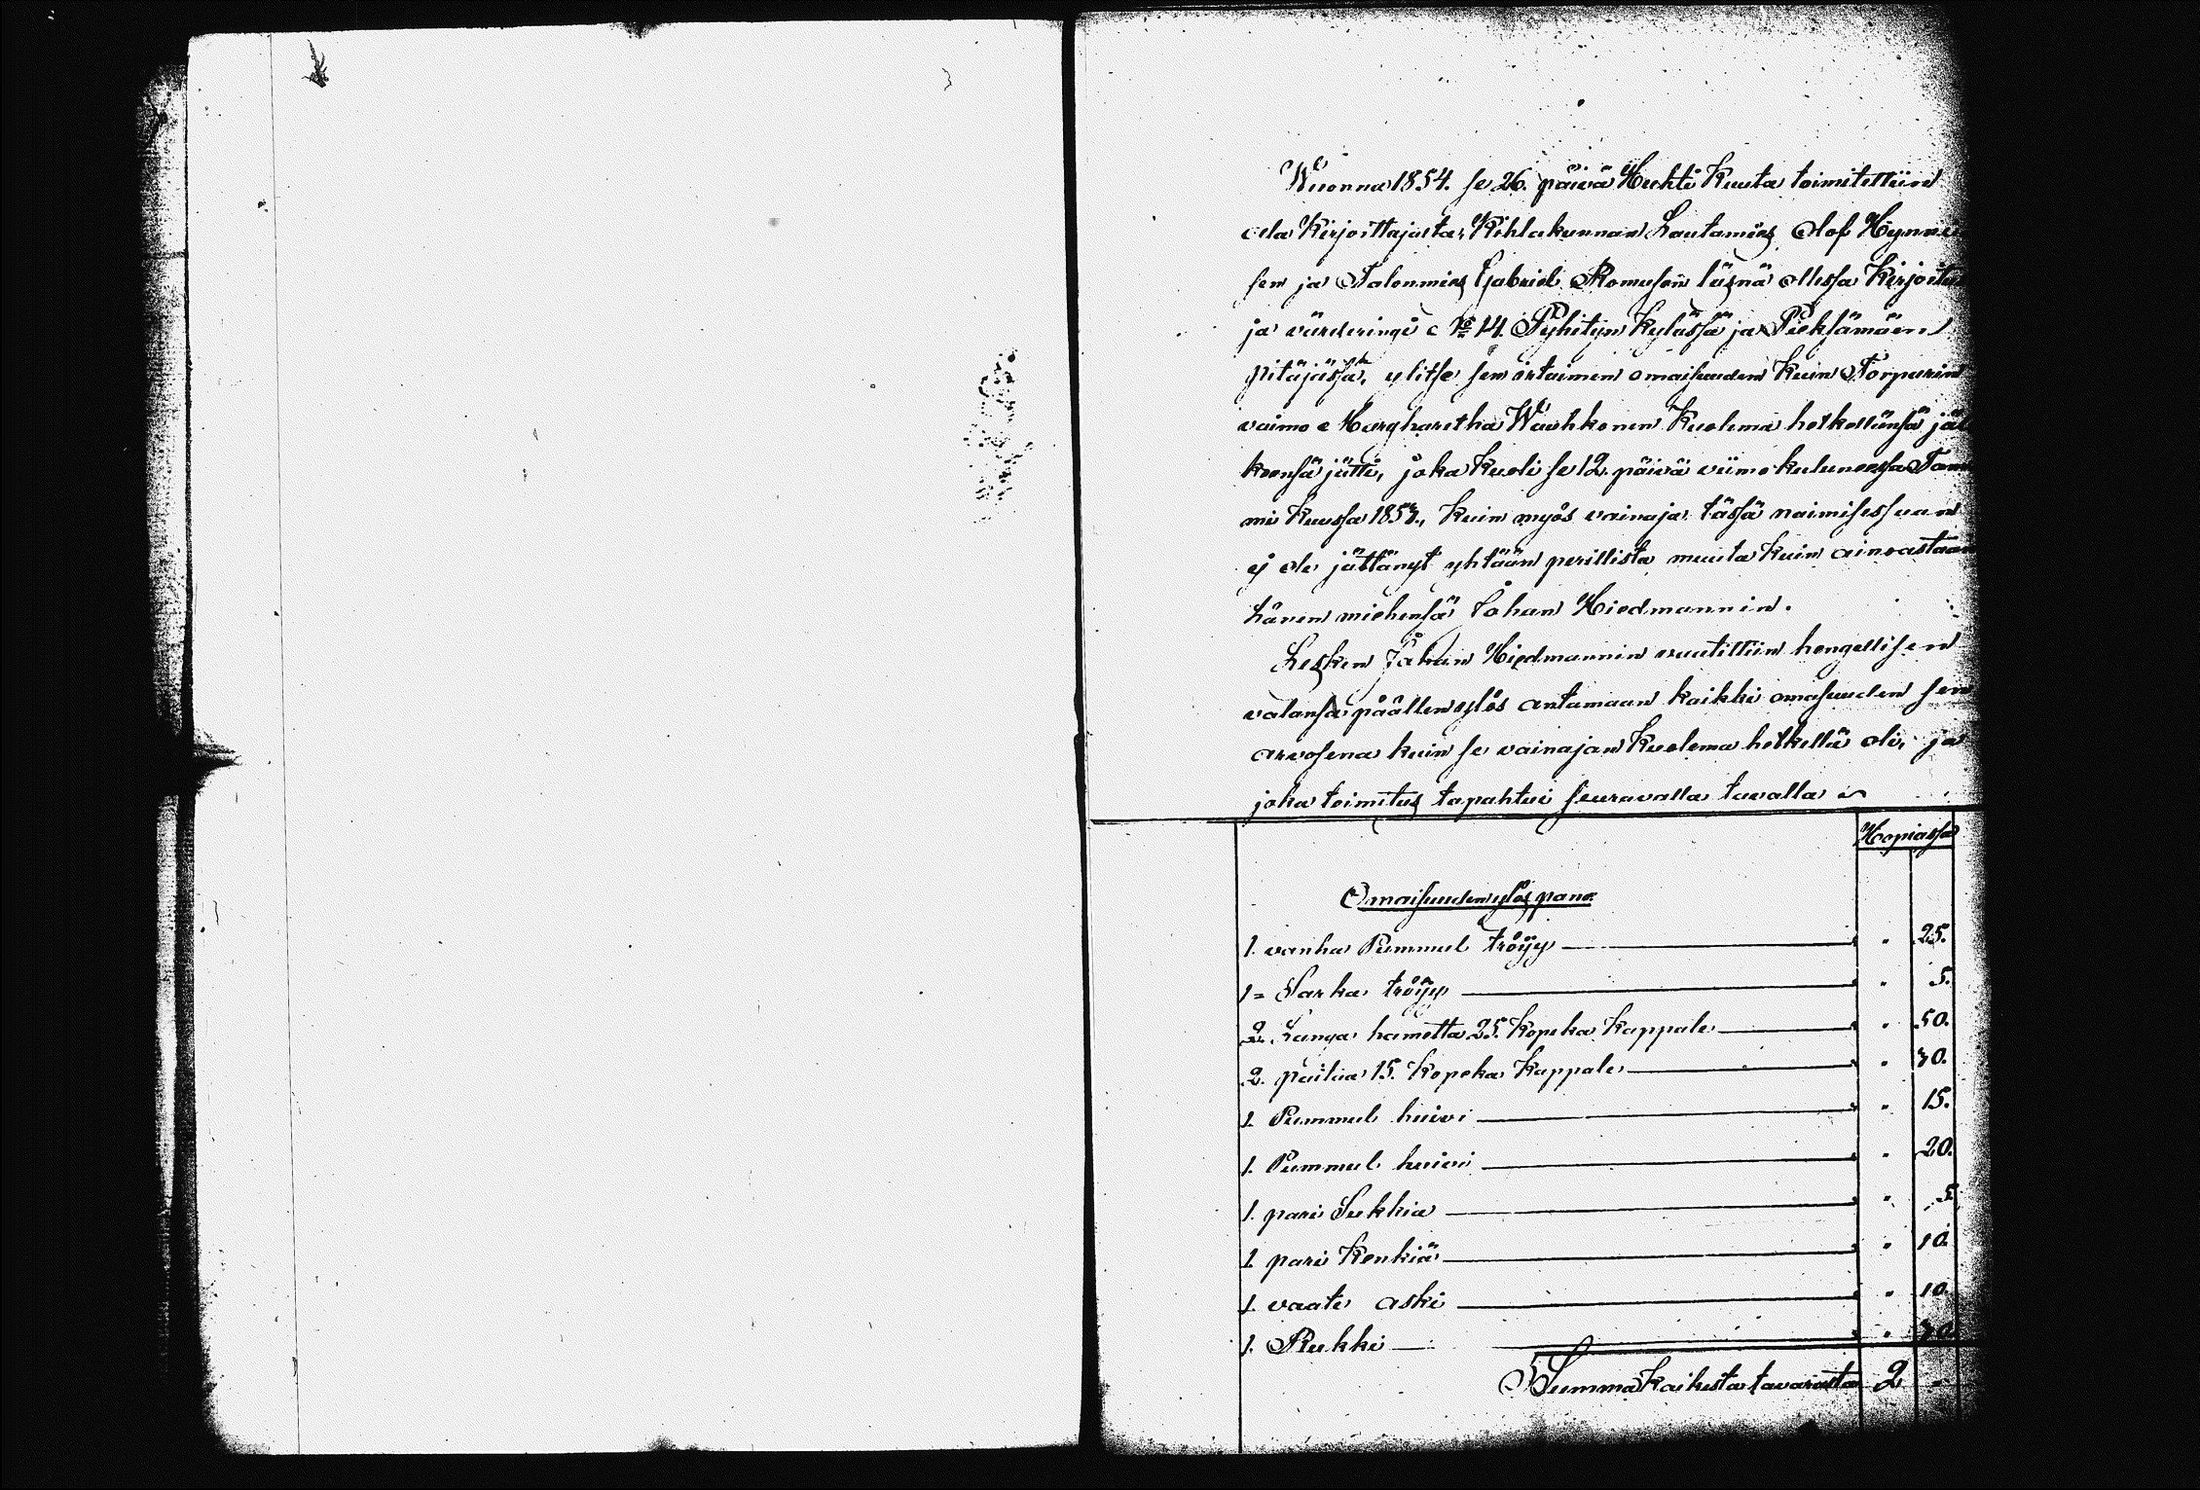 Wuonna 1854. se 26. päivä Huhti Kuuta toimitettiin
ala Kirjoittajasta, Kihlakunnan Lautamies Olof Hynni
sen ja Talonmies Gabriel Romusen läsnä ollessa Kirjoitus
ja värderingi № 14. Pyhityn Kylässä ja Pieksämäen
pitäjässä, ylitse sen irtaimen omaisuuden Kuin Torparin
vaimo Margharetha Wauhkonen Kuolema hetkellänsä jäl
keensä jätti, joka Kuoli se 12. päivä viime kuluneessa Tam
mi Kuussa 1854., Kuin myös vainaja tässä naimisessaan
ej ole jättänyt yhtään perillistä muuta Kuin ainoastaan
hänen miehensä Johan Hiedmannin.
Lesken Johan Hiedmannin vaatittiin hengellisen
valansa päällen ylös antamaan kaikki omasuuden sen
arvosena kuin se vainajan Kuolema hetkellä oli, ja
joka toimitus tapahtui seuravalla tavalla
Hopiassa
Omaisuuden ylös pano
1. vanha Pummul tröijy " 25.
1 = Sarka tröijy " 5.
2. Langa hametta 25. Kopeka Kappale " 50.
2. paitaa 15. Kopeka Kappale " 30.
1. Pummul huivi " 15.
1. Pummul huivi " 20.
1. pari Sukkia " 5
1. pari Kenkiä " 10.
1. vaate aski " 10.
1. Rukki " 30
Summa Kaikesta tavarasta 2 -